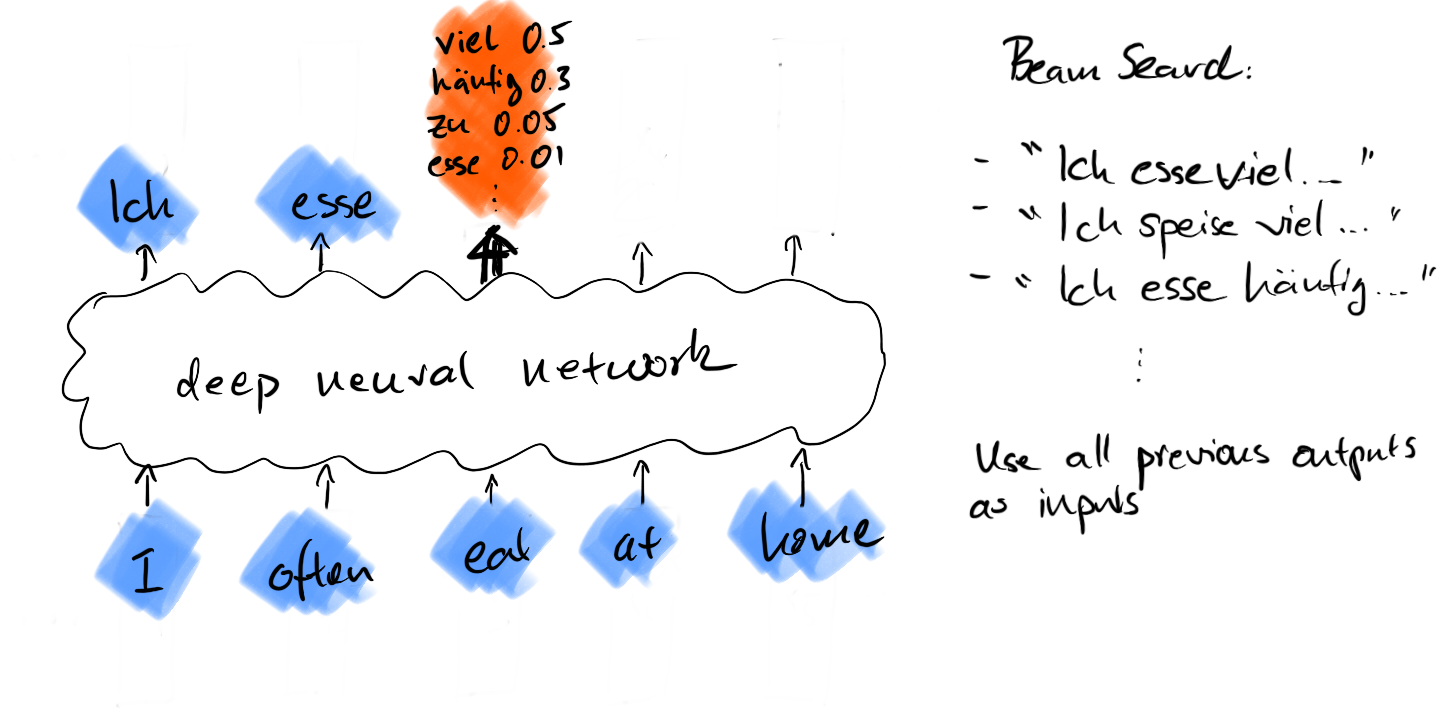 viel 0.5
häufig 0.3
zu 0.05
esse 0.01
⋮
Ich esse
deep neural network
I often eat at home
Beam Search:
- "Ich esse viel..."
- "Ich speise viel..."
- "Ich esse häufig..."
⋮
Use all previous outputs
as inputs